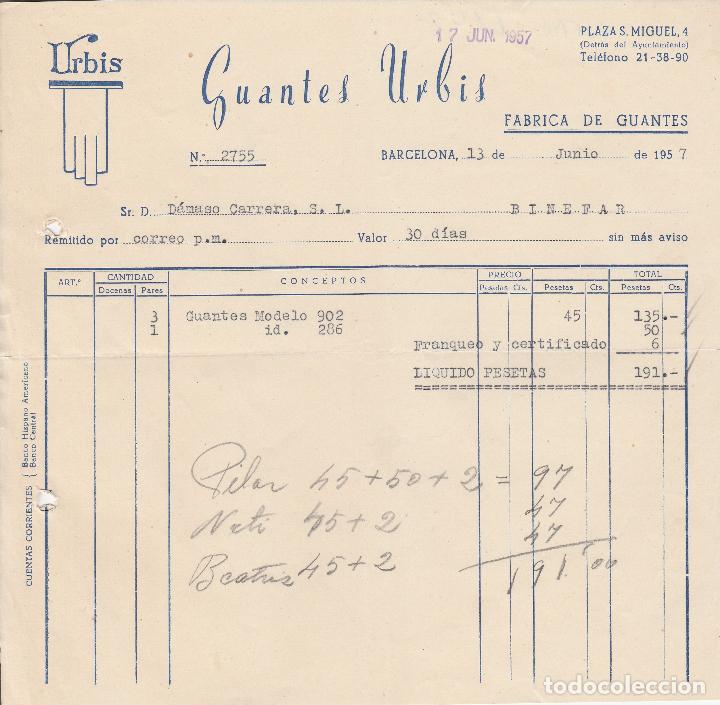 17 JUN. 1957
PLAZA S. MIGUEL, 4
(Detrás del Ayuntamiento)
Teléfono 21-38-90
Urbis
Guantes Urbis
FABRICA DE GUANTES
N.º 2755
BARCELONA, 13 de Junio de 1957
Sr. D. Dámaso Carrera, S. L. BINEFAR
Remitido por correo p.m. Valor 30 días sin más aviso
ART.º CANTIDAD CONCEPTOS PRECIO TOTAL
Docenas Pares Pesetas Cts. Pesetas Cts. Pesetas Cts.
3 Guantes Modelo 902 45 135.-
1 id. 286 50
Franqueo y certificado 6
LIQUIDO PESETAS 191.-
Pilar 45+50+2 = 97
Nati 45+2 47
Beatriz 45+2 47
191'00
CUENTAS CORRIENTES { Banco Hispano Americano
Banco Central
todocoleccion.net